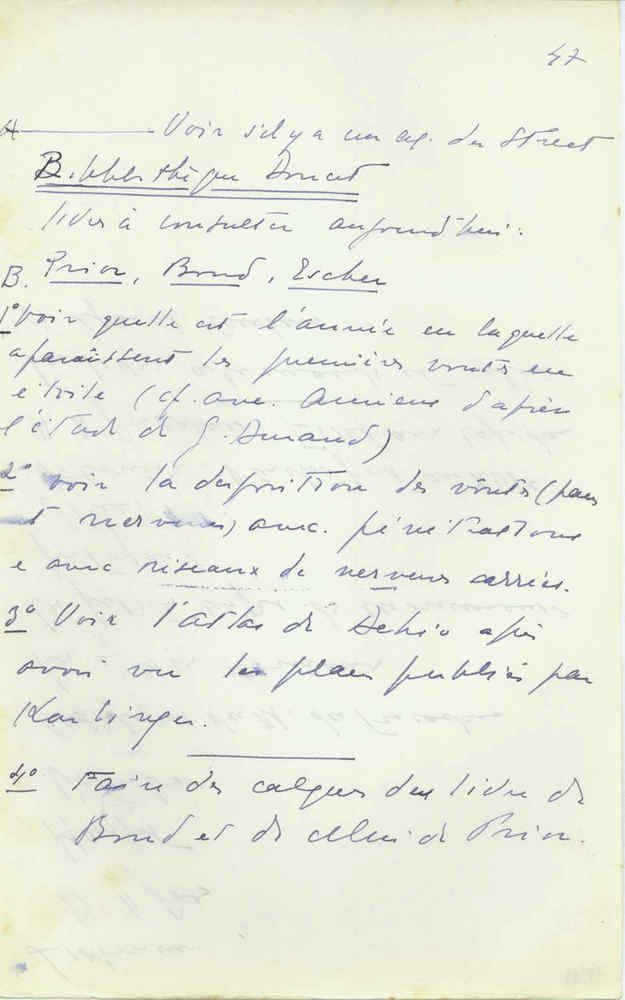 47
A — Voir s'il y a un ex. du Street
Bibliothèque Doucet
livres à consulter aujourd'hui:
B. Prior, Bond, Escher
1º Voir quelle est l'année en laquelle
aparaissent les premières voutes en
étoile (cf. avec Amiens d'après
l'étude de G. Durand)
2º voir la disposition des voutes (pans
et nervures) avec pénétrations
e avec réseaux de nerveures carrées.
3º Voir l'atlas de Dehio après
avoir vu les plans publiés par
Karlinger.
4º Faire des calques du livre de
Bond et de celui de Prior.